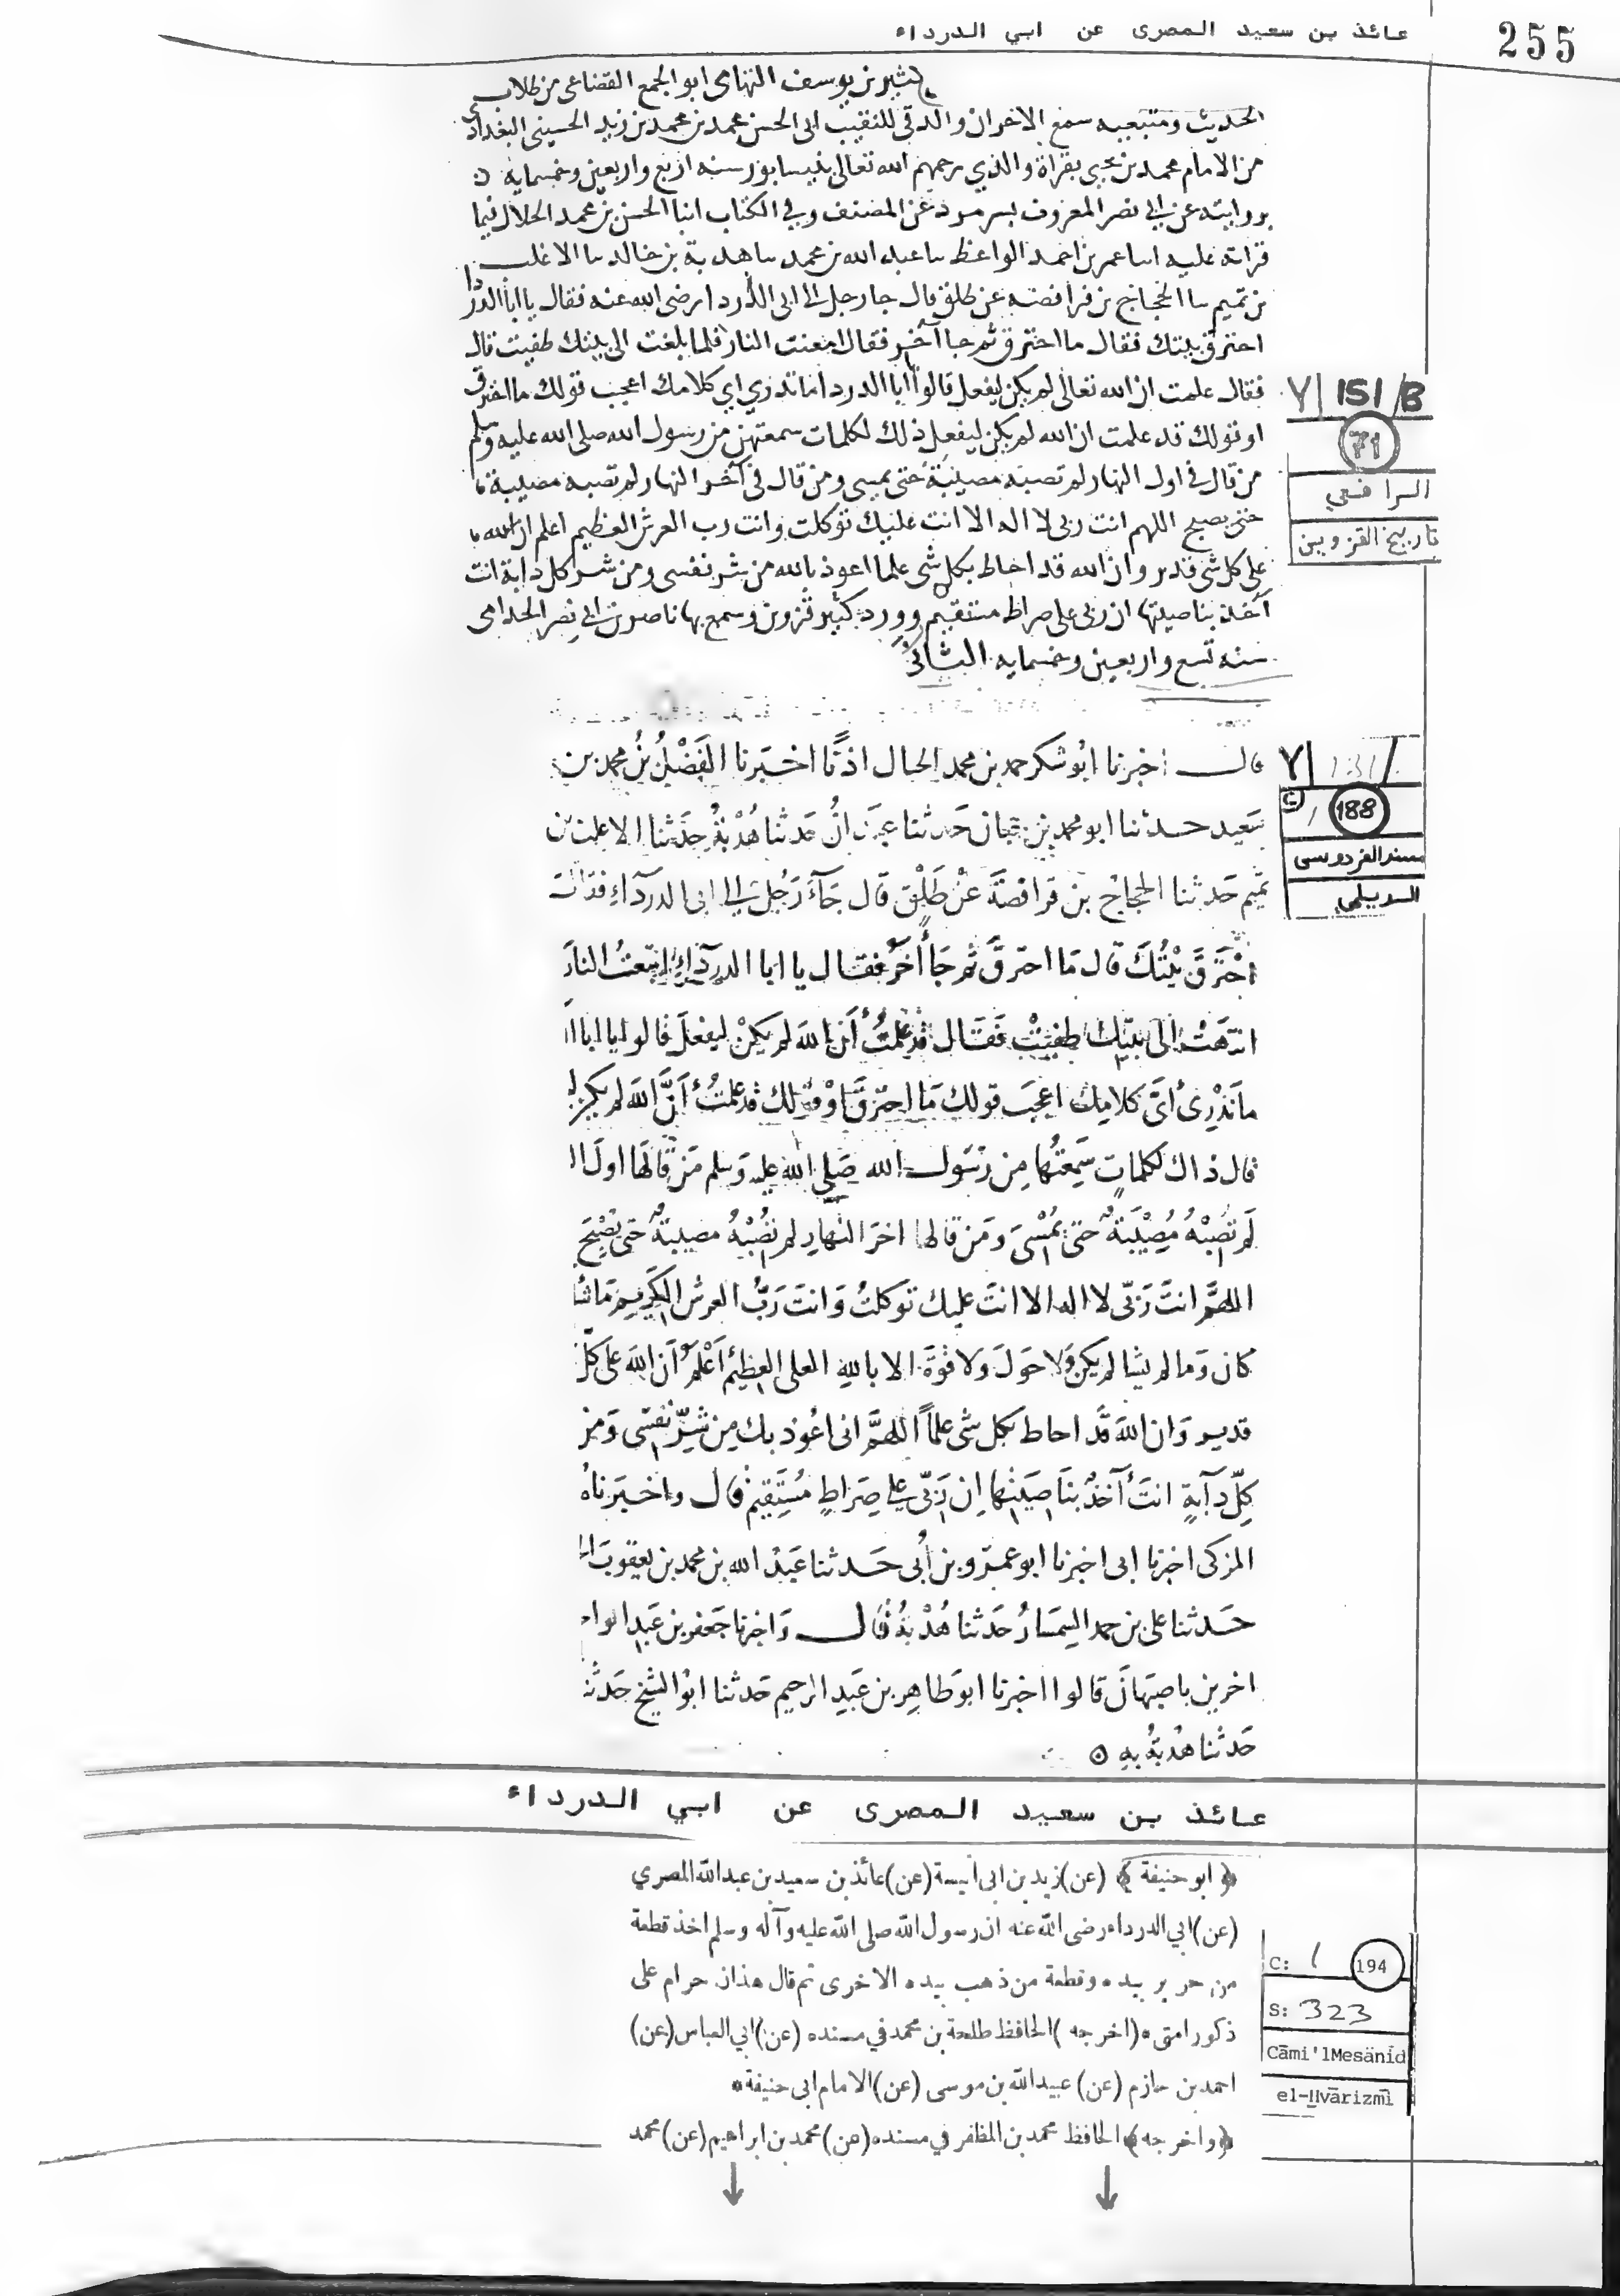 255
عائذ بن سعيد المصرى عن ابي الدرداء
كثير بن يوسف التهامى ابو الجمع القضاعى من طلاب
الحديث ومتبعيه سمع الاخوان والدقى للنقيب ابى الحسن محمد بن محمد بن زيد الحسينى البغدادى
من الامام محمد بن يحيى بقراة والدي رحمهم الله تعالى بنيسابور سنه اربع واربعين وخمسمايه
بروايته عن ابى نصر المعروف عن المصنف وفي الكتاب ابنا الحسن بن محمد الخلال فيما
قراته عليه ابنا عمر بن احمد الواعظ سا عبد الله بن محمد سا هدبة بن خالد سا الاغلب
بن تميم سا الحجاج بن فرافصه عن طلق قال جا رجل الى ابى الدردا رضى الله عنه فقال يا ابا الدردا
احترق بيتك فقال ما احترق ثم جا آخر فقال اتبعت النار فلما بلغت الى بيتك طفيت قال
فقال علمت ان الله تعالى لم يكن ليفعل قالوا ابا الدردا ما ندري اي كلامك اعجب قولك ما احترق
او قولك قد علمت ان الله لم يكن ليفعل ذلك لكلمات سمعتهن من رسول الله صلى الله عليه وسلم
من قال في اول النهار لم تصبه مصيبة حتى يمسي ومن قال في آخر النهار لم تصبه مصيبة
حتى يصبح اللهم انت ربى لا اله الا انت عليك توكلت وانت رب العرش العظيم اعلم ان الله
على كل شى قدير وان الله قد احاط بكل شى علما اعوذ بالله من شر نفسى ومن شر كل دابة انت
آخذ بناصيتها ان ربى على صراط مستقيم وورد كثير قزوين وسمع بها ناصر بن ابى نصر الحدامى
سنه تسع واربعين وخمسمايه الثانى
Y| 151/B
71
الرافعي
تاريخ القزوين
قال اخبرنا ابو شكر حمد بن محمد الحبال اذنًا اخبَرنا الفَضْلُ بنُ محمد بن
سَعيد حدثنا ابو محمد بن حيان حَدثنا حَدثنا هُدْبَةُ حدَثنا الاغلب بن
تميم حَدثنا الحجاج بن فرافصَةَ عَنْ طَلْقٍ قال جَآءَ رَجُل الى ابى الدردآءِ فقال
احْتَرَقَ بيْتُكَ قال مَا احترقَ ثم جَأ آخَر فقال يا ابا الدردآءِ اتبعتُ النارَ
انتَهَتْ الى بيتِك طفيَتْ فَقَال قد علمتُ أن اللهَ لم يكنْ ليفعلَ قالوا يا ابا ا
ما نَدْرى أىَّ كلامِك اعجَب قولك مَا احترَقَ اوْ قولك قد علمتُ أنَّ اللهَ لم يكن
قال ذاك لكلماتٍ سَمِعتُها مِن رسُول الله صَلى الله عليه وَسلم مَن قالها اولَ ا
لَم تصِبْهُ مُصِيْبَةٌ حتى يُمْسىَ ومَن قالها اخرَ النهارِ لم تصُبْهُ مصيبةٌ حَتى يُصْبحَ
اللهمَّ انتَ رَبّى لا اله الا انتَ عليك توكلتُ وَانتَ رَبُّ العرش الكَرِيم مَا شا
كان وَما لم يشا لم يكن وَلا حَولَ ولا قوةَ الا باللهِ العلى العظيم أعْلَمُ أن الله على كلّ
قدير وَان اللهَ قَد احاط بكل شى علمًا اللهمَّ انى اعُوذ بك مِن شَرّ نفسى وَمن
كلّ دآبةٍ انتَ آخذٌ بنَاصيَتها اِن رَبّى على صِرَاطٍ مُستقِيم قال واخبَرناهُ
المزكى اخبرَنا ابى اخبرَنا ابو عمرو بن أبى حَدثنا عَبْد الله بن محمد بن يعقوبَ
حَدثنا على بن حمد السِمسَارُ حَدثنا هُدْبَةُ قال وَاخبرنا جَعفر بن عَبد الواحد
اخرين باصبَهانَ قالوا اخبرنا ابو طَاهِر بن عَبد الرحيم حَدثنا ابو الشيخ حَدثنا
حَدثنا هُدبةُ بهِ
Y|
188
مسند الفردوس
الديلمي
عائذ بن سعيد المصرى عن ابي الدرداء
﴿ ابو حنيفة ﴾ (عن) زيد بن ابى انيسة (عن) عائذ بن سعيد بن عبد الله المصري
(عن) ابي الدرداء رضى الله عنه ان رسول الله صلى الله عليه وآله وسلم اخذ قطعة
من حرير بيده وقطعة من ذهب بيده الاخرى ثم قال هذان حرام على
ذكور امتى * (اخرجه) الحافظ طلحة بن محمد في مسنده (عن) ابي العباس (عن)
احمد بن حازم (عن) عبيد الله بن موسى (عن) الامام ابى حنيفة *
﴿ واخرجه ﴾ الحافظ محمد بن المظفر في مسنده (عن) محمد بن ابراهيم (عن) محمد
C: 1 194
S: 323
Cāmi'lMesānīd
el-Hvārizmī